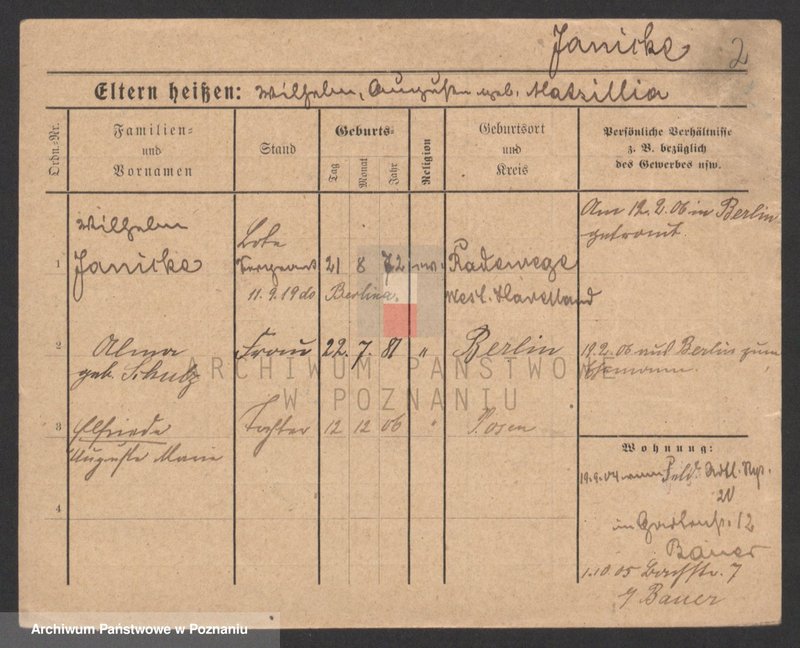 Janicke 2
Eltern heißen: Wilhelm, Auguste geb. Matzillia
Ordn.-Nr.
Familien- und Vornamen
Stand
Geburts-
Tag Monat Jahr
Religion
Geburtsort und Kreis
Persönliche Verhältnisse
z. B. bezüglich
des Gewerbes usw.
Wilhelm
1 Janicke
21 8 72 ew. Radewege
West. Havelland
11. 9. 19 do Berlin
Am 12. 2. 06 in Berlin
getraut.
2 Alma Frau 22. 7. 81 " Berlin
geb. Schulz
19. 2. 06 aus Berlin zum
Ehemann.
3 Elfriede Tochter 12 12 06 " Posen
Auguste Marie
4
Wohnung:
19. 9. 04
12
Bauer
1. 10. 05 Bachstr. 7
Bauer
ARCHIWUM PAŃSTWOWE
W POZNANIU
Archiwum Państwowe w Poznaniu